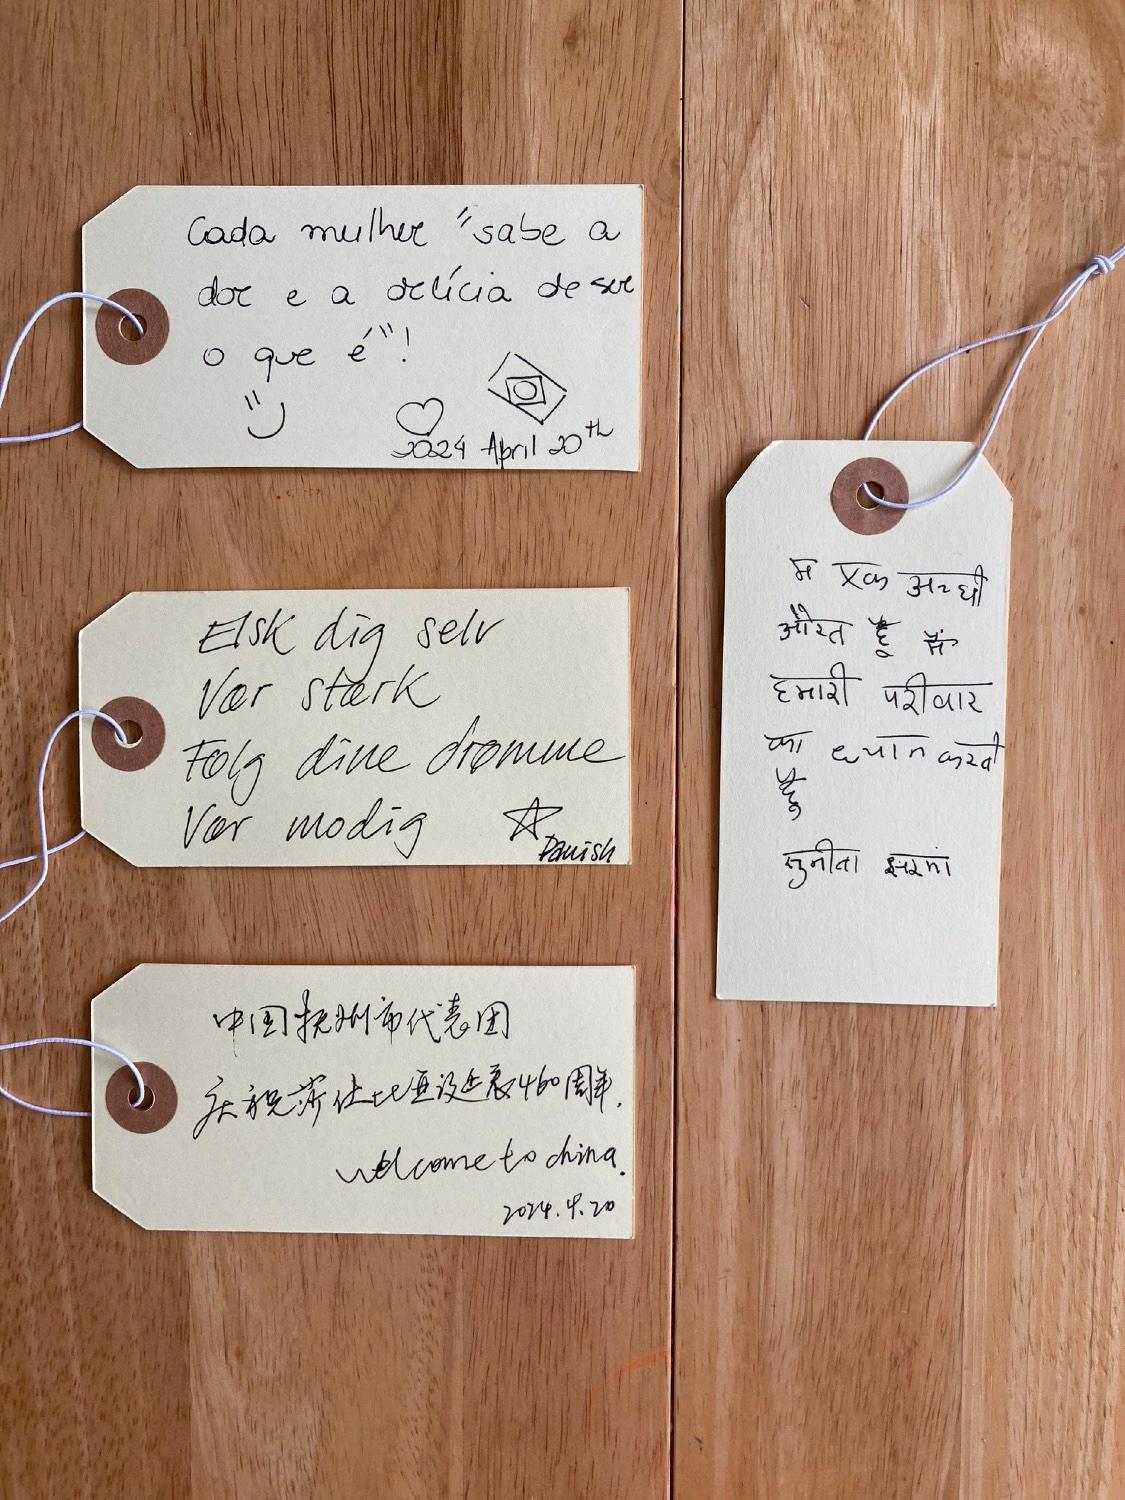 Cada mulher "sabe a
dor e a delícia de ser
o que é"!
2024 April 20th
Elsk dig selv
Vær stærk
Følg dine drømme
Vær modig
Danish
中国抚州市代表团
庆祝莎士比亚诞辰460周年.
Welcome to china.
2024.4.20
म एक अच्छी
औरत हूँ मैं
हमारी परीवार
का ध्यान करती
हूँ
सुनीता